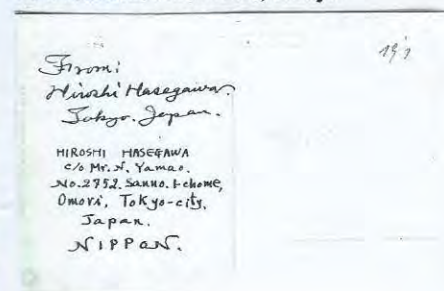 From:
Hiroshi Hasegawa.
Tokyo. Japan.
HIROSHI HASEGAWA
c/o Mr. N. Yamao.
No.2752. Sanno. 1-chome,
Omori, Tokyo-city,
Japan.
NIPPON.